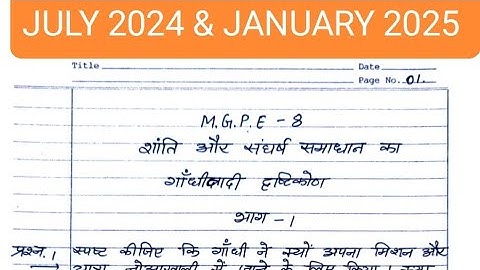 JULY 2024 & JANUARY 2025
Title
Date
Page No. 01.
M.G.P.E - 8
शांति और संघर्ष समाधान का
गाँधीवादी दृष्टिकोण
भाग -1
प्रश्न.1 स्पष्ट कीजिए कि गाँधी ने क्यों अपना मिशन और